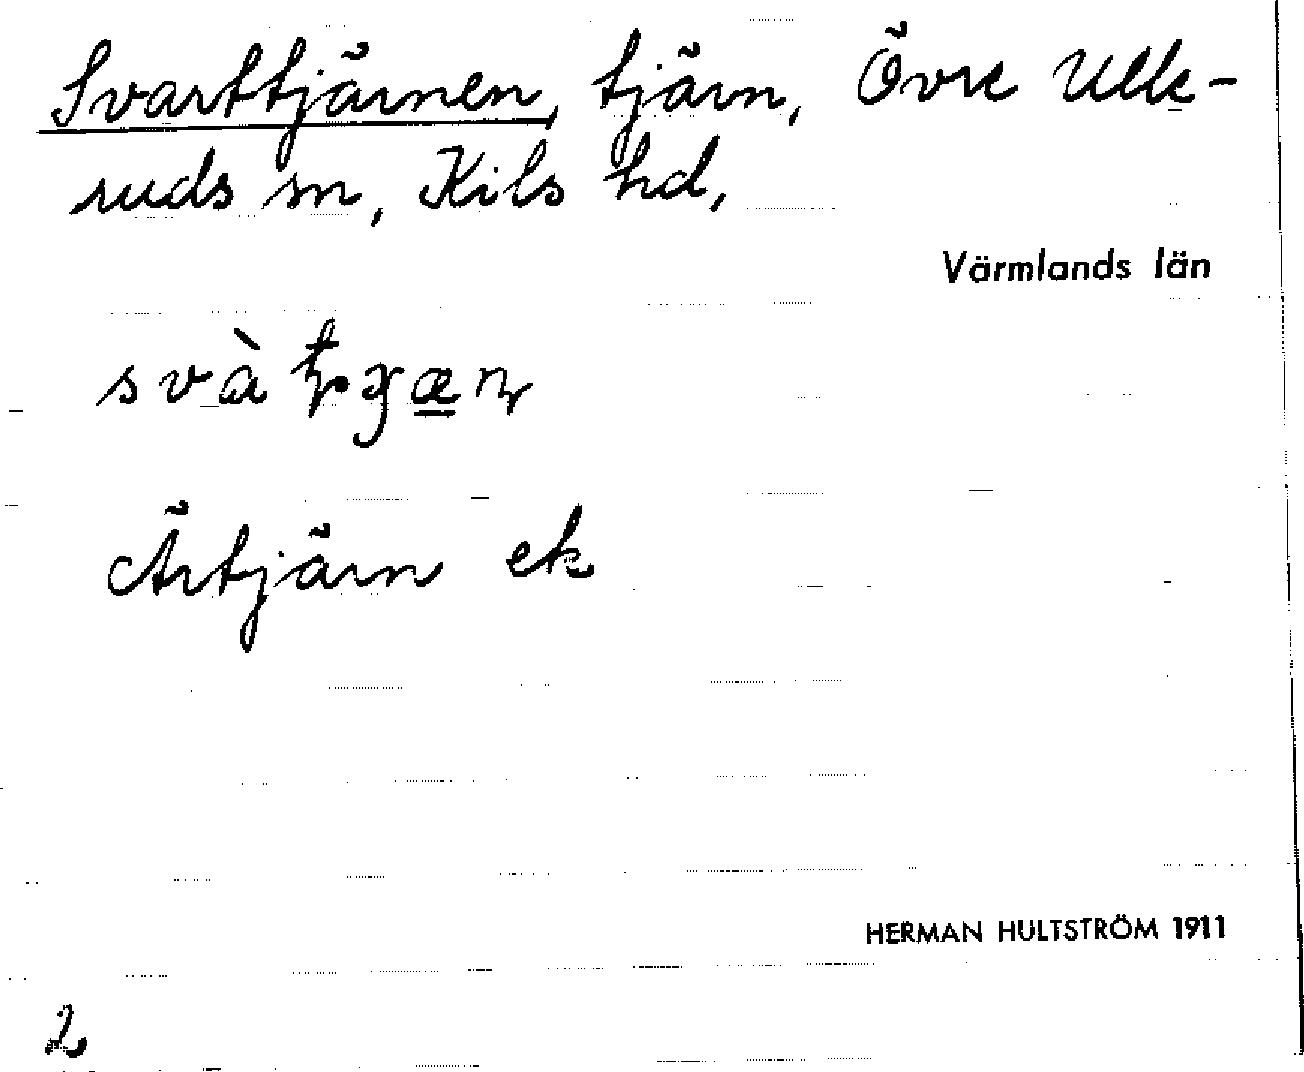 Svarttjärnen, tjärn, Övre Ulle-
ruds sn, Kils hd,
Värmlands län
Ärtjärn ek
HERMAN HULTSTRÖM 1911
2